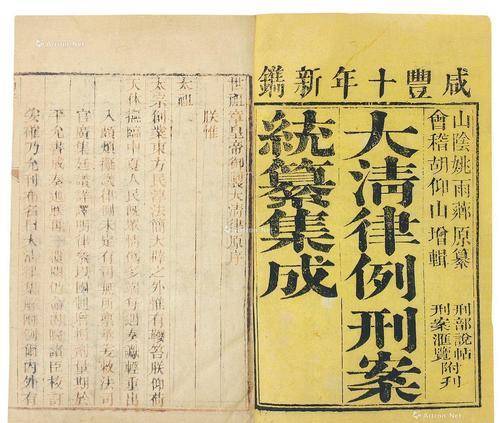 咸豐十年新鐫
山陰姚雨薌原纂
會稽胡仰山增輯
刑部說帖附刊
刑案滙覽附
大清律例刑案
統纂集成
世祖章皇帝御製大清律原序
朕惟
太祖
太宗創業東方民淳法簡大辟之外惟有鞭笞朕仰荷
天休撫臨中夏人民旣衆情僞多端每遇奏讞輕重出
入頗煩擬議律例未定有司無所稟承爰敕法司
官廣集廷議詳譯明律參以國制增損劑量期於
平允書成奏進朕再三覆閱仍命內院諸臣校訂
妥確乃允刊布名曰大清律集解附例爾內外有
Artron.Net